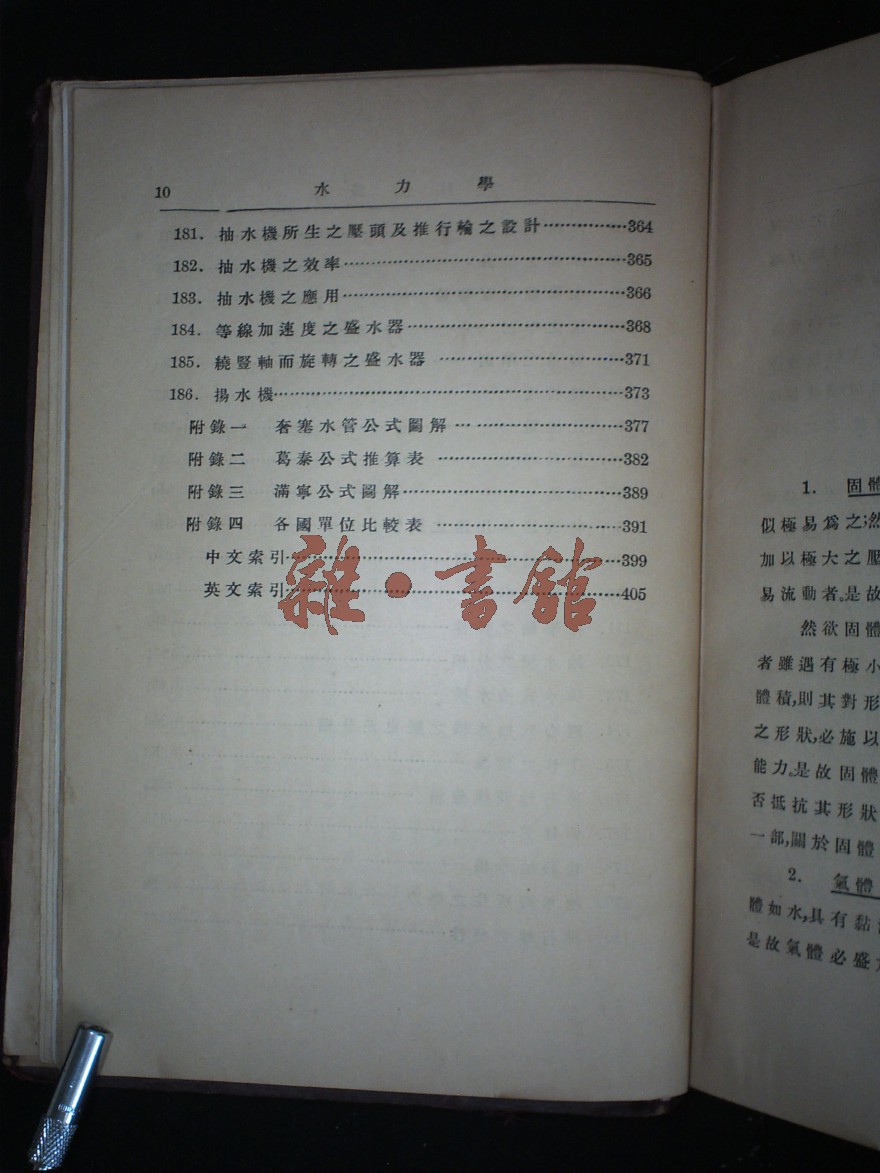 10 水力學
181. 抽水機所生之壓頭及推行輪之設計……………364
182. 抽水機之效率……………365
183. 抽水機之應用……………366
184. 等線加速度之盛水器……………368
185. 繞豎軸而旋轉之盛水器……………371
186. 揚水機……………373
附錄一 奢塞水管公式圖解……………377
附錄二 葛泰公式推算表……………382
附錄三 滿寧公式圖解……………389
附錄四 各國單位比較表……………391
中文索引……………399
英文索引……………405
雜·書館
1. 固體
似極易爲之;然
加以極大之壓
易流動者。是故
然欲固體
者雖遇有極小
體積,則其對形
之形狀,必施以
能力。是故固體
否抵抗其形狀
一部,關於固體
2. 氣體
體如水,具有黏
是故氣體必盛